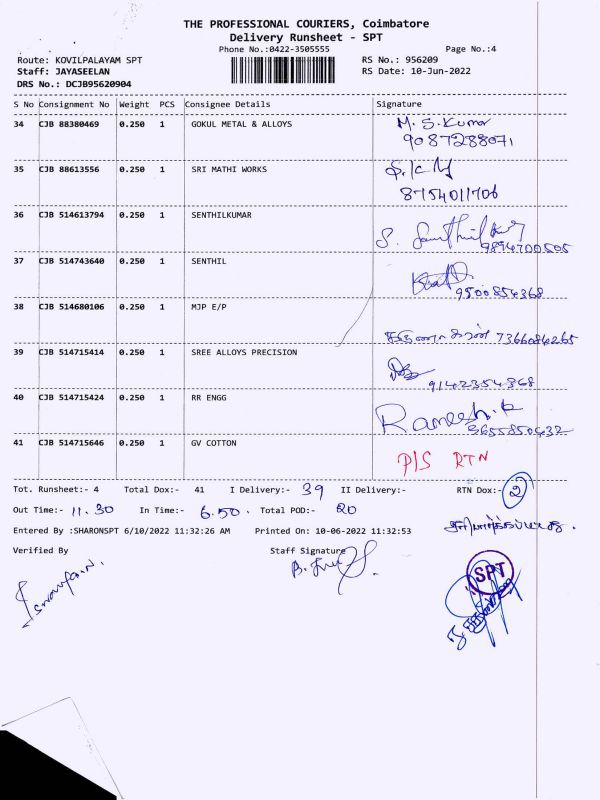 THE PROFESSIONAL COURIERS, Coimbatore
Delivery Runsheet - SPT
Phone No.:0422-3505555 Page No.:4
Route: KOVILPALAYAM SPT RS No.: 956209
Staff: JAYASEELAN RS Date: 10-Jun-2022
DRS No.: DCJB95620904
S No Consignment No Weight PCS Consignee Details Signature
34 CJB 88380469 0.250 1 GOKUL METAL & ALLOYS M. S. Kumar
9087288071
35 CJB 88613556 0.250 1 SRI MATHI WORKS
8754011706
36 CJB 514613794 0.250 1 SENTHILKUMAR S. Senthil Kumar
9894700505
37 CJB 514743640 0.250 1 SENTHIL
9500854368
38 CJB 514680106 0.250 1 MJP E/P
7366084265
39 CJB 514715414 0.250 1 SREE ALLOYS PRECISION
9142354368
40 CJB 514715424 0.250 1 RR ENGG Ramesh.k
9655850432
41 CJB 514715646 0.250 1 GV COTTON P/S RTN
Tot. Runsheet:- 4 Total Dox:- 41 I Delivery:- 39 II Delivery:- RTN Dox:- 2
Out Time:- 11.30 In Time:- 6.50. Total POD:- 20
Entered By :SHARONSPT 6/10/2022 11:32:26 AM Printed On: 10-06-2022 11:32:53
Verified By Staff Signature
SPT